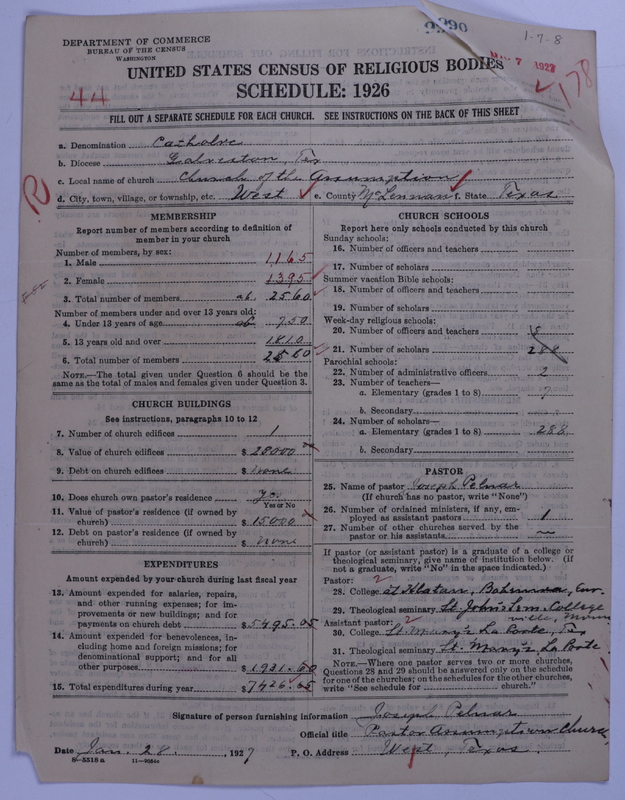 1-7-8
DEPARTMENT OF COMMERCE
BUREAU OF THE CENSUS
WASHINGTON
7 1927
178
UNITED STATES CENSUS OF RELIGIOUS BODIES
44
SCHEDULE: 1926
FILL OUT A SEPARATE SCHEDULE FOR EACH CHURCH. SEE INSTRUCTIONS ON THE BACK OF THIS SHEET
a. Denomination Catholic
b. Diocese Galveston, Tex
c. Local name of church Church of the Assumption
R
d. City, town, village, or township, etc. West e. County McLennan f. State Texas
MEMBERSHIP
Report number of members according to definition of member in your church
Number of members, by sex:
1. Male 1165
2. Female 1395
3. Total number of members ab. 2560
Number of members under and over 13 years old:
4. Under 13 years of age ab 750
5. 13 years old and over 1810
6. Total number of members 2560
NOTE.—The total given under Question 6 should be the same as the total of males and females given under Question 3.
CHURCH BUILDINGS
See instructions, paragraphs 10 to 12
7. Number of church edifices 1
8. Value of church edifices $ 28000
9. Debt on church edifices $ none
10. Does church own pastor's residence Yes
Yes or No
11. Value of pastor's residence (if owned by church) $ 15000
12. Debt on pastor's residence (if owned by church) $ none
EXPENDITURES
Amount expended by your church during last fiscal year
13. Amount expended for salaries, repairs, and other running expenses; for improvements or new buildings; and for payments on church debt $ 5495.05
14. Amount expended for benevolences, including home and foreign missions; for denominational support; and for all other purposes $ 1931.60
15. Total expenditures during year $ 7426.65
CHURCH SCHOOLS
Report here only schools conducted by this church
Sunday schools:
16. Number of officers and teachers
17. Number of scholars
Summer vacation Bible schools:
18. Number of officers and teachers
19. Number of scholars
Week-day religious schools:
20. Number of officers and teachers
21. Number of scholars 288
Parochial schools:
22. Number of administrative officers 2
23. Number of teachers—
a. Elementary (grades 1 to 8) 7
b. Secondary
24. Number of scholars—
a. Elementary (grades 1 to 8) 288
b. Secondary
PASTOR
25. Name of pastor Joseph Pelnar
(If church has no pastor, write "None")
26. Number of ordained ministers, if any, employed as assistant pastors 1
27. Number of other churches served by the pastor or his assistants
If pastor (or assistant pastor) is a graduate of a college or theological seminary, give name of institution below. (If not a graduate, write "No" in the space indicated.)
Pastor: 2
28. College at Klatau, Bohemia, Eur.
29. Theological seminary St. Johns College
Assistant pastor: 2
30. College St. Mary's La Porte, Tex
31. Theological seminary St. Mary's La Porte
NOTE.—Where one pastor serves two or more churches, Questions 28 and 29 should be answered only on the schedule for one of the churches; on the schedules for the other churches, write "See schedule for church."
Signature of person furnishing information Joseph Pelnar
Official title Pastor Assumption Church,
Date Jan. 28. , 1927 P. O. Address West, Texas.
8—5518a 11—9584a